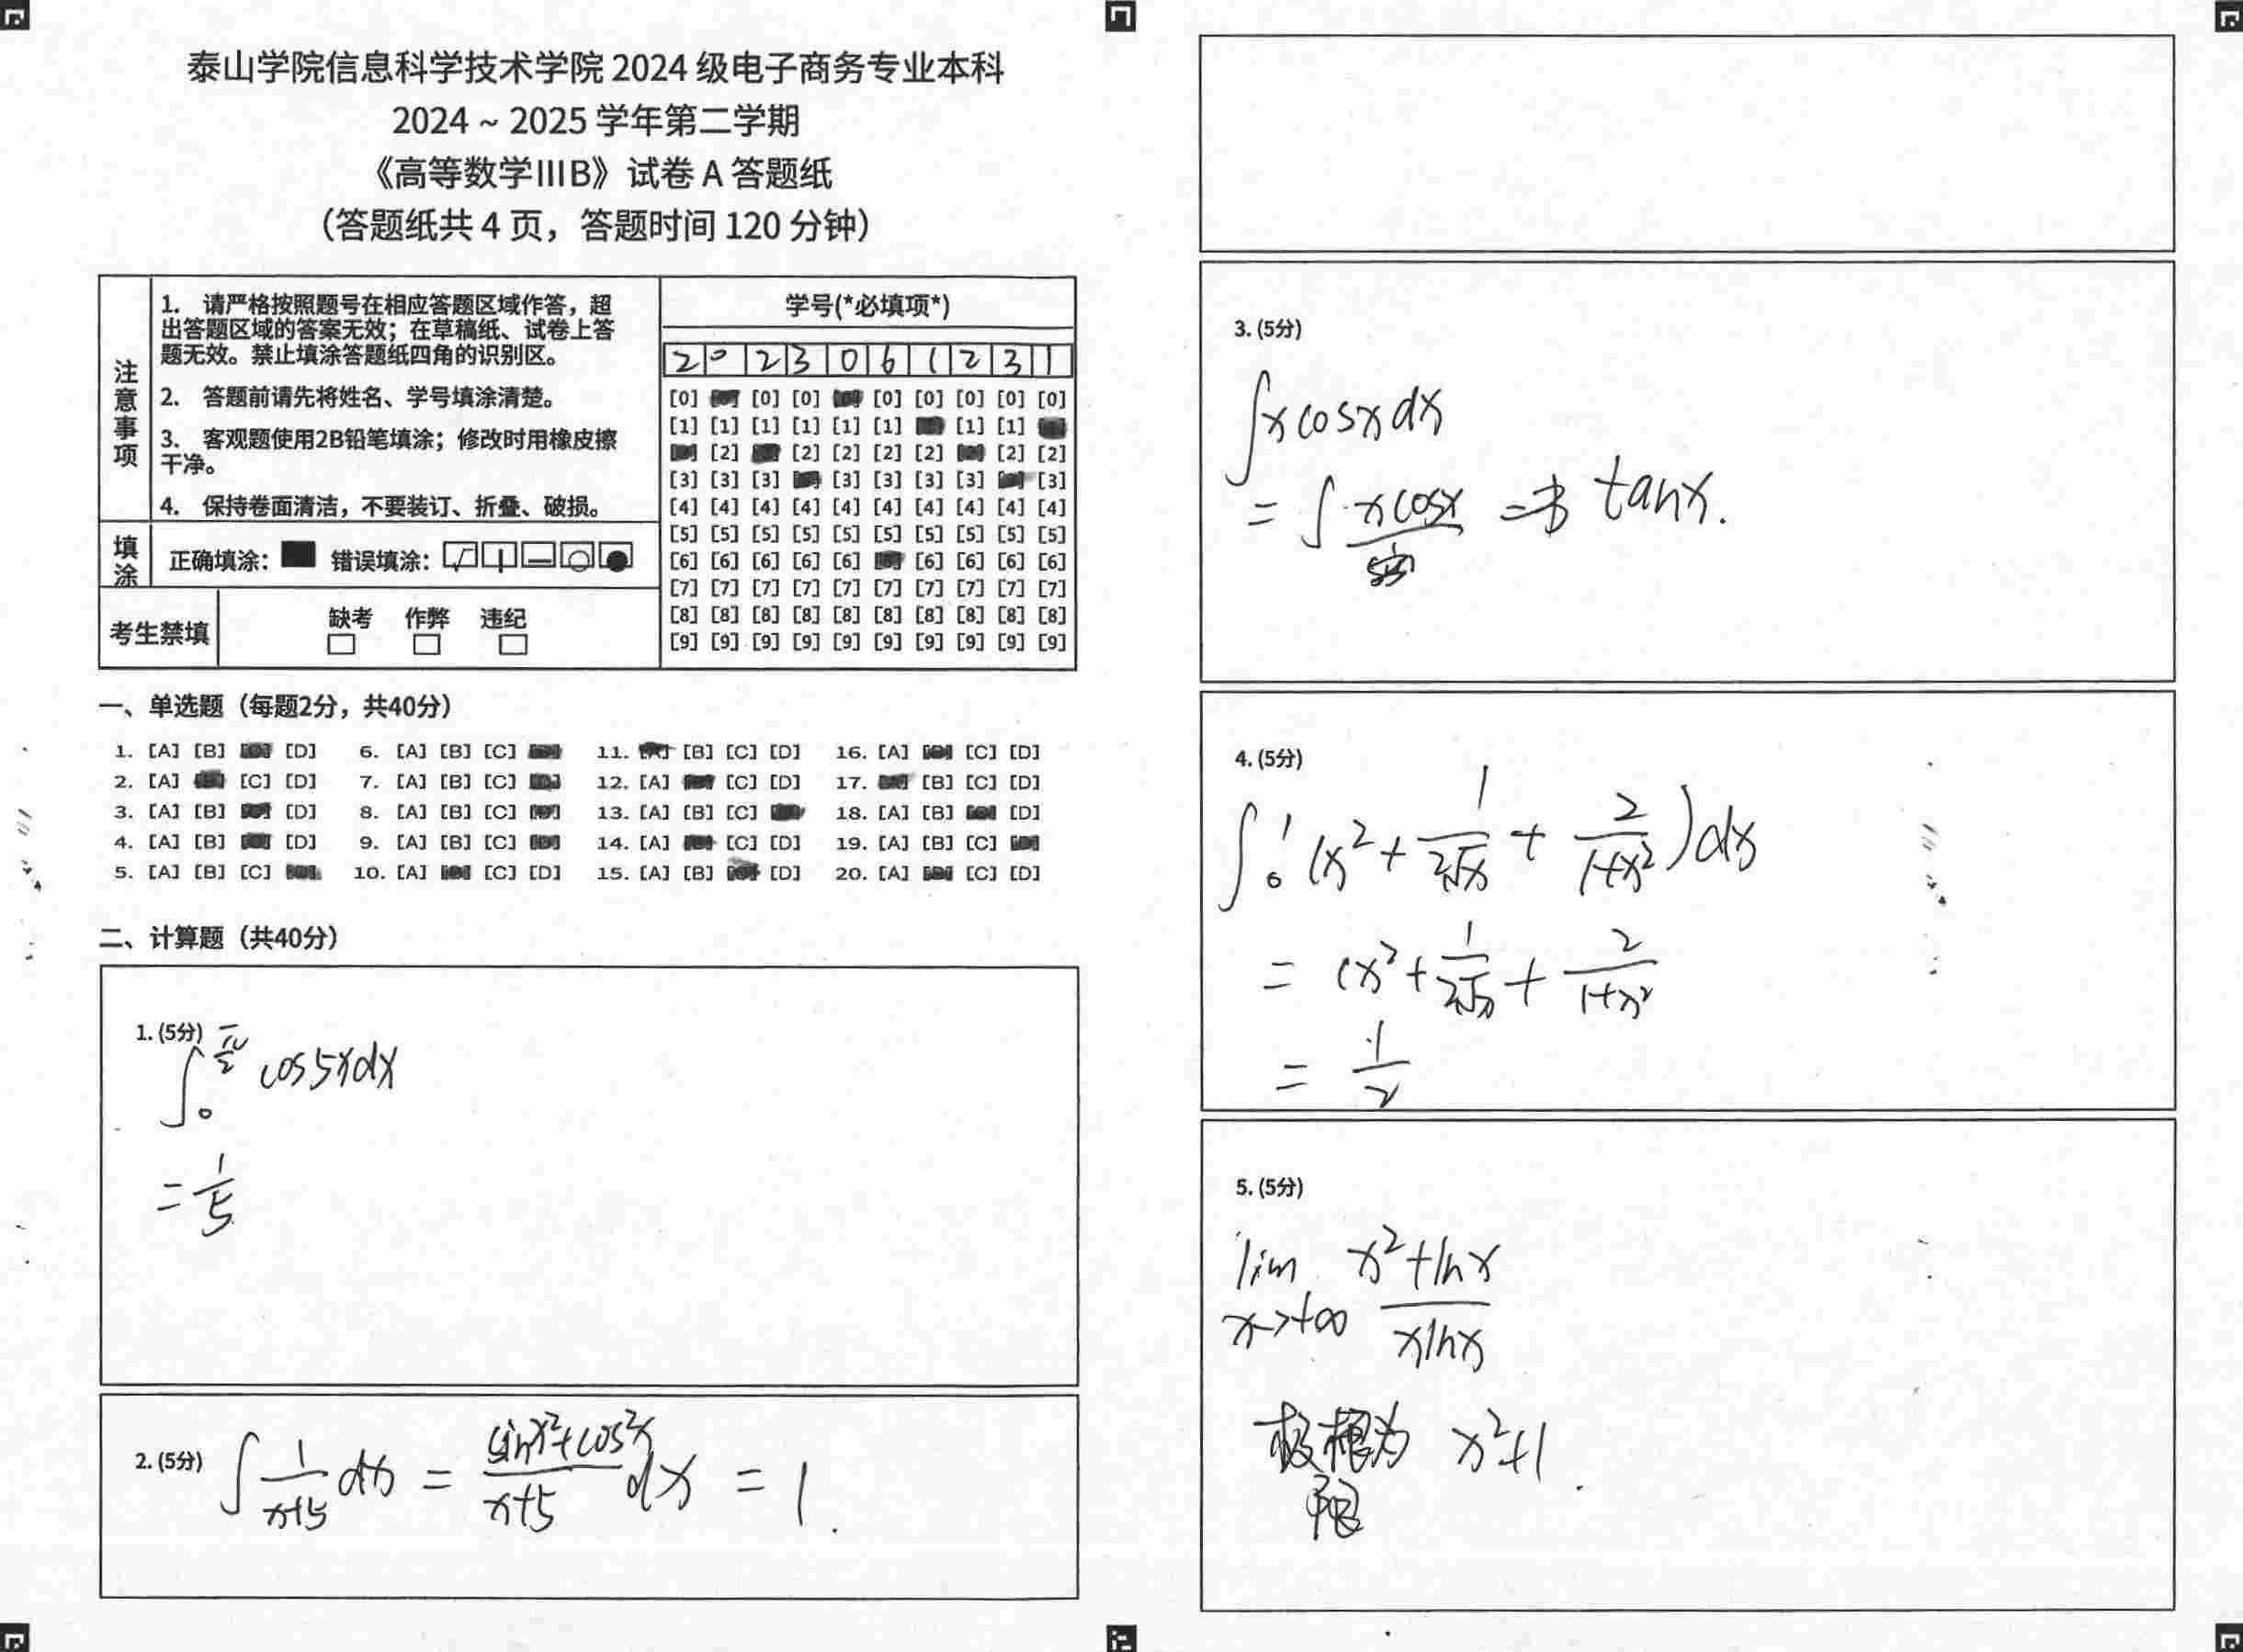 泰山学院信息科学技术学院 2024 级电子商务专业本科
2024 ~ 2025 学年第二学期
《高等数学ⅢB》试卷 A 答题纸
（答题纸共 4 页，答题时间 120 分钟）
注意事项
1. 请严格按照题号在相应答题区域作答，超
出答题区域的答案无效；在草稿纸、试卷上答
题无效。禁止填涂答题纸四角的识别区。
2. 答题前请先将姓名、学号填涂清楚。
3. 客观题使用2B铅笔填涂；修改时用橡皮擦
干净。
4. 保持卷面清洁，不要装订、折叠、破损。
填涂
正确填涂： 错误填涂：
考生禁填
缺考 作弊 违纪
学号(*必填项*)
2 0 2 3 0 6 1 2 3 1
[0] [0] [0] [0] [0] [0] [0] [0]
[1] [1] [1] [1] [1] [1] [1] [1]
[2] [2] [2] [2] [2] [2] [2]
[3] [3] [3] [3] [3] [3] [3] [3]
[4] [4] [4] [4] [4] [4] [4] [4] [4] [4]
[5] [5] [5] [5] [5] [5] [5] [5] [5] [5]
[6] [6] [6] [6] [6] [6] [6] [6] [6]
[7] [7] [7] [7] [7] [7] [7] [7] [7] [7]
[8] [8] [8] [8] [8] [8] [8] [8] [8] [8]
[9] [9] [9] [9] [9] [9] [9] [9] [9] [9]
一、单选题（每题2分，共40分）
1. [A] [B] [D] 6. [A] [B] [C] 11. [B] [C] [D] 16. [A] [C] [D]
2. [A] [C] [D] 7. [A] [B] [C] 12. [A] [C] [D] 17. [B] [C] [D]
3. [A] [B] [D] 8. [A] [B] [C] 13. [A] [B] [C] 18. [A] [B] [D]
4. [A] [B] [D] 9. [A] [B] [C] 14. [A] [C] [D] 19. [A] [B] [C]
5. [A] [B] [C] 10. [A] [C] [D] 15. [A] [B] [D] 20. [A] [C] [D]
二、计算题（共40分）
1. (5分)
∫₀^(π/2) cos5xdx
= 1/5
2. (5分) ∫ 1/(x+5) dx = (sinx²+cos²x)/(x+5) dx = 1.
3. (5分)
∫xcosxdx
= ∫ xcosx/ ⇒ tanx.
4. (5分)
∫₀¹ (x² + 1/(2√x) + 2/(1+x²))dx
= (x² + 1/(2√x) + 2/(1+x²)
= 1/2
5. (5分)
lim x→+∞ (x²+lnx)/(xlnx)
极限为 x²+1.